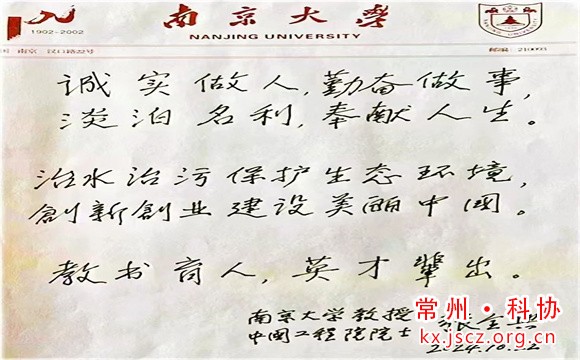 1902-2002
南京大學
NANJING UNIVERSITY
南京·汉口路22号
邮编: 210093
诚实做人,勤奋做事,
淡泊名利,奉献人生。
治水治污保护生态环境,
創新創业建设美丽中国。
教书育人,英才辈出。
南京大学教授
中国工程院院士 张全兴
2024.10.22
常州·科协
kx.jscz.org.cn